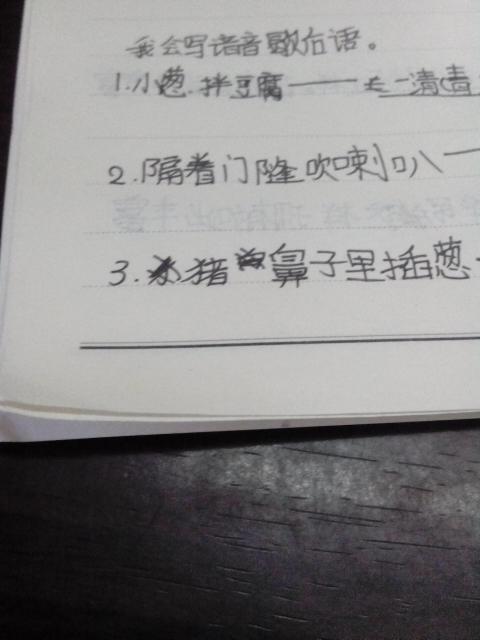 我会写谐音歇后语。
1.小葱拌豆腐——一清
2.隔着门隆吹喇叭—
3.猪鼻子里插葱